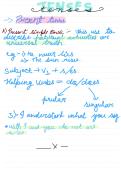 TENSES
→ Present tense
1) Present simple tense - this use to describe habitual activities are universal truth.
eg - He never lies
→ The sun rises
Subject + V₁ + s/es
Helping verbs = do/does
→ I understand what you say